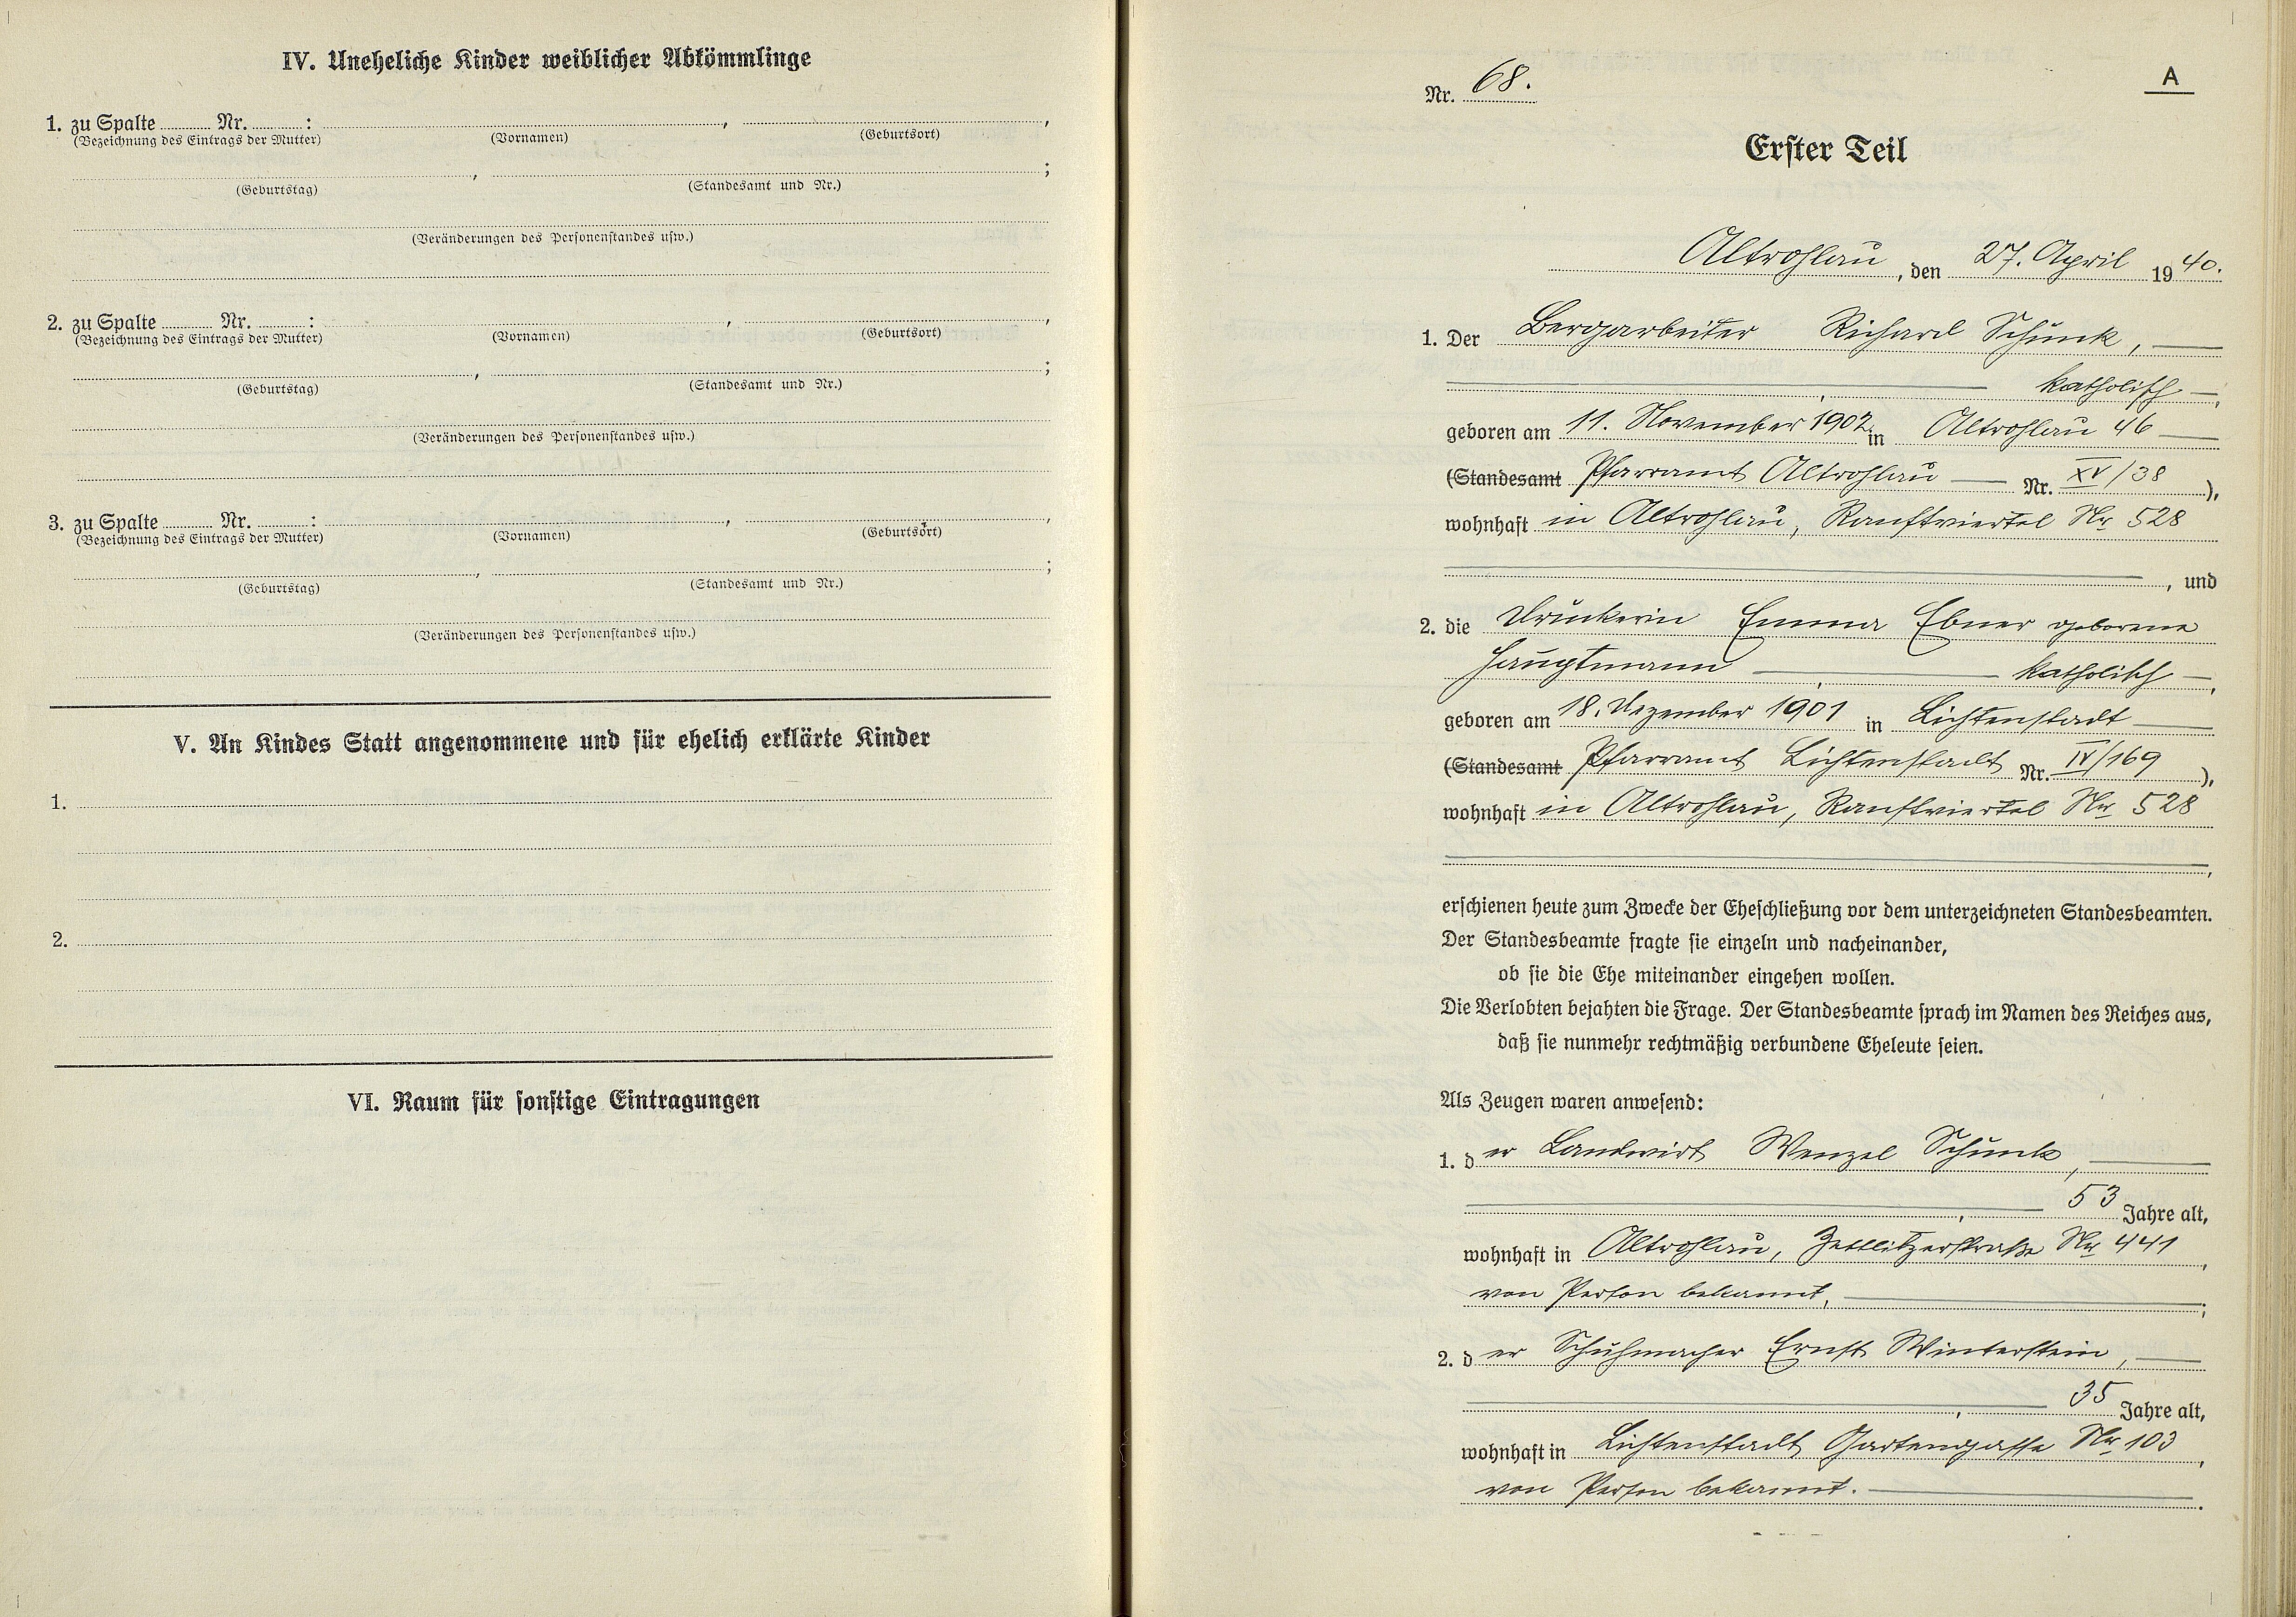 IV. Uneheliche Kinder weiblicher Abkömmlinge
1. zu Spalte Nr. : , ,
(Bezeichnung des Eintrags der Mutter) (Vornamen) (Geburtsort)
, ;
(Geburtstag) (Standesamt und Nr.)
(Veränderungen des Personenstandes usw.)
2. zu Spalte Nr. : , ,
(Bezeichnung des Eintrags der Mutter) (Vornamen) (Geburtsort)
, ;
(Geburtstag) (Standesamt und Nr.)
(Veränderungen des Personenstandes usw.)
3. zu Spalte Nr. : , ,
(Bezeichnung des Eintrags der Mutter) (Vornamen) (Geburtsort)
, ;
(Geburtstag) (Standesamt und Nr.)
(Veränderungen des Personenstandes usw.)
V. An Kindes Statt angenommene und für ehelich erklärte Kinder
1.
2.
VI. Raum für sonstige Eintragungen
A
Nr. 68.
Erster Teil
Altrohlau, den 27. April 1940.
1. Der Bergarbeiter Richard Schunk,
, katholisch,
geboren am 11. November 1902 in Altrohlau 46
(Standesamt Pfarramt Altrohlau Nr. XV/38),
wohnhaft in Altrohlau, Ranftviertel Nr 528
, und
2. die Druckerin Emma Ebner geborene
Hauptmann, katholisch,
geboren am 18. Dezember 1901 in Lichtenstadt
(Standesamt Pfarramt Lichtenstadt Nr. IV/169),
wohnhaft in Altrohlau, Ranftviertel Nr 528
,
erschienen heute zum Zwecke der Eheschließung vor dem unterzeichneten Standesbeamten.
Der Standesbeamte fragte sie einzeln und nacheinander,
ob sie die Ehe miteinander eingehen wollen.
Die Verlobten bejahten die Frage. Der Standesbeamte sprach im Namen des Reiches aus,
daß sie nunmehr rechtmäßig verbundene Eheleute seien.
Als Zeugen waren anwesend:
1. der Landwirt Wenzel Schunk,
, 53 Jahre alt,
wohnhaft in Altrohlau, Zettlitzerstraße Nr 441,
von Person bekannt,;
2. der Schuhmacher Ernst Winterstein,
, 35 Jahre alt,
wohnhaft in Lichtenstadt Gartengasse Nr 103,
von Person bekannt.